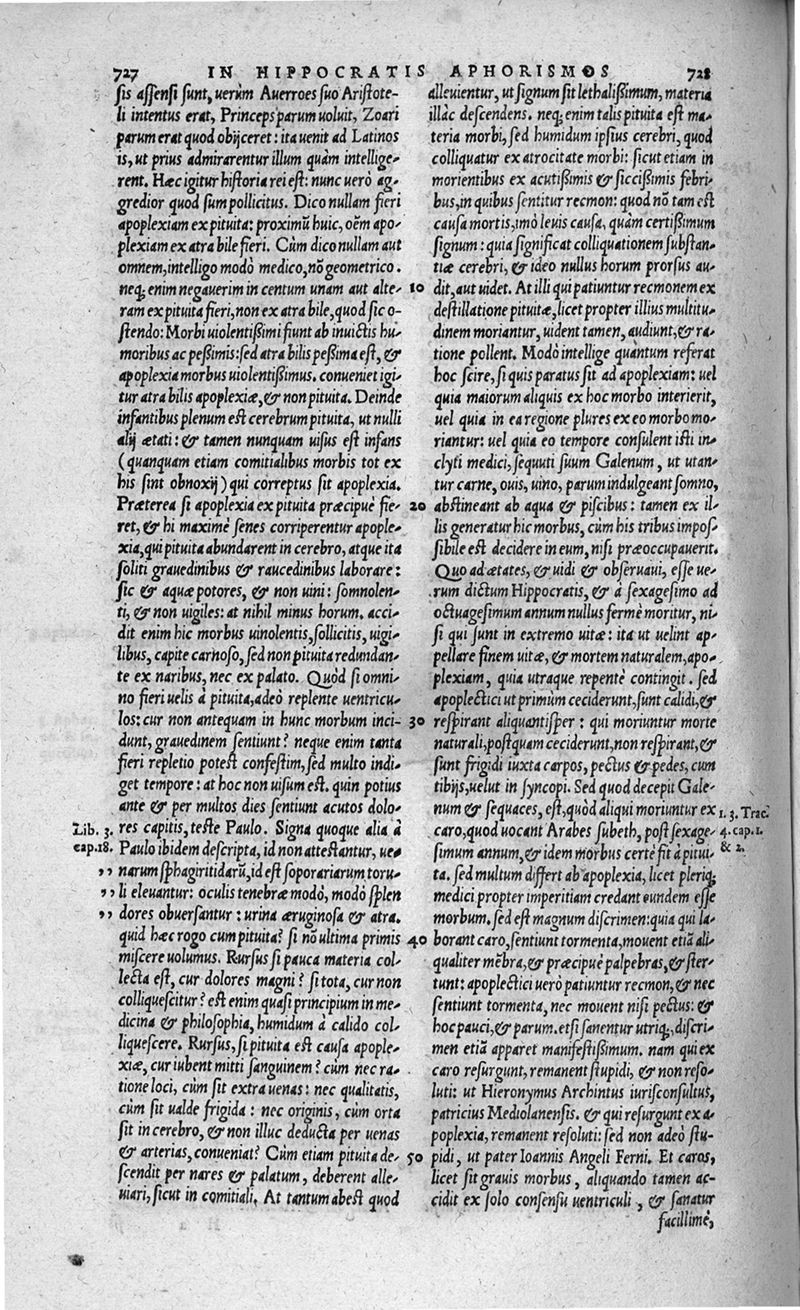 727 IN HIPPOCRATIS APHORISMOS 728
sis assensi sunt, uerùm Auerroes suo Aristote-
li intentus erat, Princeps parum uoluit, Zoari
parum erat quod obijceret: ita uenit ad Latinos
is, ut prius admirarentur illum quàm intellige-
rent. Hæc igitur historia rei est: nunc uerò ag-
gredior quod sum pollicitus. Dico nullam fieri
apoplexiam ex pituita: proximũ huic, oẽm apo-
plexiam ex atra bile fieri. Cùm dico nullam aut
omnem, intelligo modò medico, nõ geometrico.
neq; enim negauerim in centum unam aut alte-
ram ex pituita fieri, non ex atra bile, quod sic o-
stendo: Morbi uiolentißimi fiunt ab inuictis hu-
moribus ac peßimis: sed atra bilis peßima est, &
apoplexia morbus uiolentißimus. conueniet igi-
tur atra bilis apoplexiæ, & non pituita. Deinde
infantibus plenum est cerebrum pituita, ut nulli
alij ætati: & tamen nunquam uisus est infans
(quanquam etiam comitialibus morbis tot ex
his sint obnoxij) qui correptus sit apoplexia.
Præterea si apoplexia ex pituita præcipuè fie-
ret, & hi maximè senes corriperentur apople-
xia, qui pituita abundarent in cerebro, atque ita
soliti grauedinibus & raucedinibus laborare:
sic & aquæ potores, & non uini: somnolen-
ti, & non uigiles: at nihil minus horum. acci-
dit enim hic morbus uinolentis, sollicitis, uigi-
libus, capite carnoso, sed non pituita redundan-
te ex naribus, nec ex palato. Quòd si omni-
no fieri uelis à pituita, adeò replente uentricu-
los: cur non antequam in hunc morbum inci-
dunt, grauedinem sentiunt? neque enim tanta
fieri repletio potest confestim, sed multo indi-
get tempore: at hoc non uisum est. quin potius
ante & per multos dies sentiunt acutos dolo-
res capitis, teste Paulo. Signa quoque alia à
Paulo ibidem descripta, id non attestantur, ue-
narum sphagiritidarũ, id est soporariarum toru-
li eleuantur: oculis tenebræ modò, modò splen
dores obuersantur: urina æruginosa & atra.
quid hæc rogo cum pituita? si nõ ultima primis
miscere uolumus. Rursus si pauca materia col-
lecta est, cur dolores magni? si tota, cur non
colliquescitur? est enim quasi principium in me-
dicina & philosophia, humidum à calido col-
liquescere. Rursus, si pituita est causa apople-
xiæ, cur iubent mitti sanguinem? cùm nec ra-
tione loci, cùm sit extra uenas: nec qualitatis,
cùm sit ualde frigida: nec originis, cùm orta
sit in cerebro, & non illuc deducta per uenas
& arterias, conueniat? Cùm etiam pituita de-
scendit per nares & palatum, deberent alle-
uiari, sicut in comitiali. At tantum abest quod
Lib. 3.
cap. 18.
,,
,,
,,
10
20
30
40
50
alleuientur, ut signum sit lethalißimum, materia
illàc descendens. neq; enim talis pituita est ma-
teria morbi, sed humidum ipsius cerebri, quod
colliquatur ex atrocitate morbi: sicut etiam in
morientibus ex acutißimis & siccißimis febri-
bus, in quibus sentitur recmon: quod nõ tam est
causa mortis, imò leuis causa, quàm certißimum
signum: quia significat colliquationem substan-
tiæ cerebri, & ideo nullus horum prorsus au-
dit, aut uidet. At illi qui patiuntur recmonem ex
destillatione pituitæ, licet propter illius multitu-
dinem moriantur, uident tamen, audiunt, & ra-
tione pollent. Modò intellige quantum referat
hoc scire, si quis paratus sit ad apoplexiam: uel
quia maiorum aliquis ex hoc morbo interierit,
uel quia in ea regione plures ex eo morbo mo-
riantur: uel quia eo tempore consulent isti in-
clyti medici, sequuti suum Galenum, ut utan-
tur carne, ouis, uino, parum indulgeant somno,
abstineant ab aqua & piscibus: tamen ex il-
lis generatur hic morbus, cùm his tribus impos-
sibile est decidere in eum, nisi præoccupauerit.
Quo ad ætates, & uidi & obseruaui, esse ue-
rum dictum Hippocratis, & à sexagesimo ad
octuagesimum annum nullus fermè moritur, ni-
si qui sunt in extremo uitæ: ita ut uelint ap-
pellare finem uitæ, & mortem naturalem, apo-
plexiam, quia utraque repentè contingit. sed
apoplectici ut primum ceciderunt, sunt calidi, &
respirant aliquantisper: qui moriuntur morte
naturali, postquam ceciderunt, non respirant, &
sunt frigidi iuxta carpos, pectus & pedes, cum
tibijs, uelut in syncopi. Sed quod decepit Gale-
num & sequaces, est, quòd aliqui moriuntur ex
caro, quod uocant Arabes subeth, post sexage-
simum annum, & idem morbus certè fit à pitui-
ta. sed multum differt ab apoplexia, licet pleriq;
medici propter imperitiam credant eundem esse
morbum. sed est magnum discrimen: quia qui la-
borant caro, sentiunt tormenta, mouent etiã ali-
qualiter mẽbra, & præcipuè palpebras, & ster-
tunt: apoplectici uerò patiuntur recmon, & nec
sentiunt tormenta, nec mouent nisi pectus: &
hoc pauci, & parum. etsi sanentur utriq;, discri-
men etiã apparet manifestißimum. nam qui ex
caro resurgunt, remanent stupidi, & non reso-
luti: ut Hieronymus Archintus iurisconsultus,
patricius Mediolanensis. & qui resurgunt ex a-
poplexia, remanent resoluti: sed non adeò stu-
pidi, ut pater Ioannis Angeli Ferni. Et caros,
licet sit grauis morbus, aliquando tamen ac-
cidit ex solo consensu uentriculi, & sanatur
facillimè,
1. 3. Trac.
4. cap. 1.
& 2.